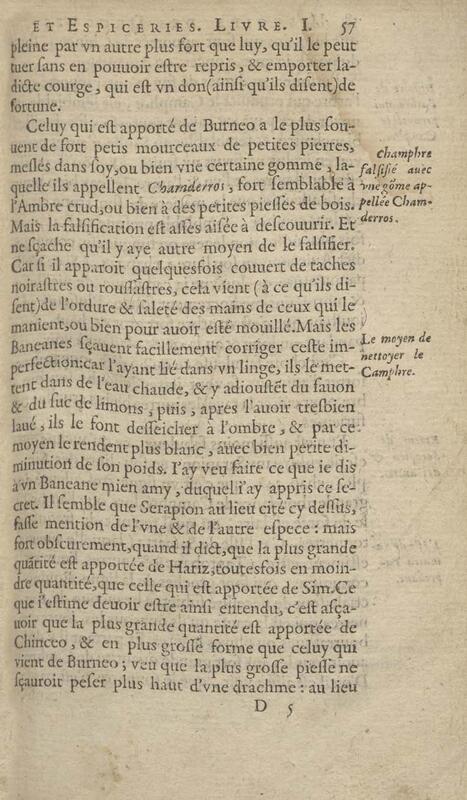 ET ESPICERIES. LIVRE. I. 57
pleine par vn autre plus fort que luy, qu'il le peut
tuer ſans en pouuoir eſtre repris, & emporter la-
dicte courge, qui eſt vn don(ainſi qu'ils diſent)de
fortune.
Celuy qui eſt apporté de Burneo a le plus ſou-
uent de fort petis mourceaux de petites pierres,
meſlés dans ſoy, ou bien vne certaine gomme, la-
quelle ils appellent Chamderros, fort ſemblable à
l'Ambre crud, ou bien à des petites pieſſes de bois.
Mais la falſification eſt aſſes aiſée à deſcouurir. Et
ne ſçache qu'il y aye autre moyen de le falſifier.
Car ſi il apparoit quelquesfois couuert de taches
noiraſtres ou rouſſaſtres, cela vient (à ce qu'ils di-
ſent)de l'ordure & ſaleté des mains de ceux qui le
manient, ou bien pour auoir eſté mouillé. Mais les
Baneanes ſçauent facillement corriger ceſte im-
perfection: car l'ayant lié dans vn linge, ils le met-
tent dans de l'eau chaude, & y adiouſtẽt du ſauon
& du ſuc de limons, puis, apres l'auoir treſbien
laué, ils le font deſſeicher à l'ombre, & par ce
moyen le rendent plus blanc, auec bien petite di-
minution de ſon poids. I'ay veu faire ce que ie dis
à vn Baneane mien amy, duquel i'ay appris ce ſe-
cret. Il ſemble que Serapion au lieu cité cy deſſus,
faſſe mention de l'vne & de l'autre eſpece: mais
fort obſcurement, quand il dict, que la plus grande
quãtité eſt apportée de Hariz, toutesfois en moin-
dre quantité, que celle qui eſt apportée de Sim. Ce
que i'eſtime deuoir eſtre ainſi entendu, c'eſt aſça-
uoir que la plus grande quantité eſt apportée de
Chinceo, & en plus groſſe forme que celuy qui
vient de Burneo; veu que la plus groſſe pieſſe ne
ſçauroit peſer plus haut d'vne drachme: au lieu
D 5
Champhre
falſifié auec
vne gõme ap-
pellée Cham-
derros.
Le moyen de
nettoyer le
Camphre.